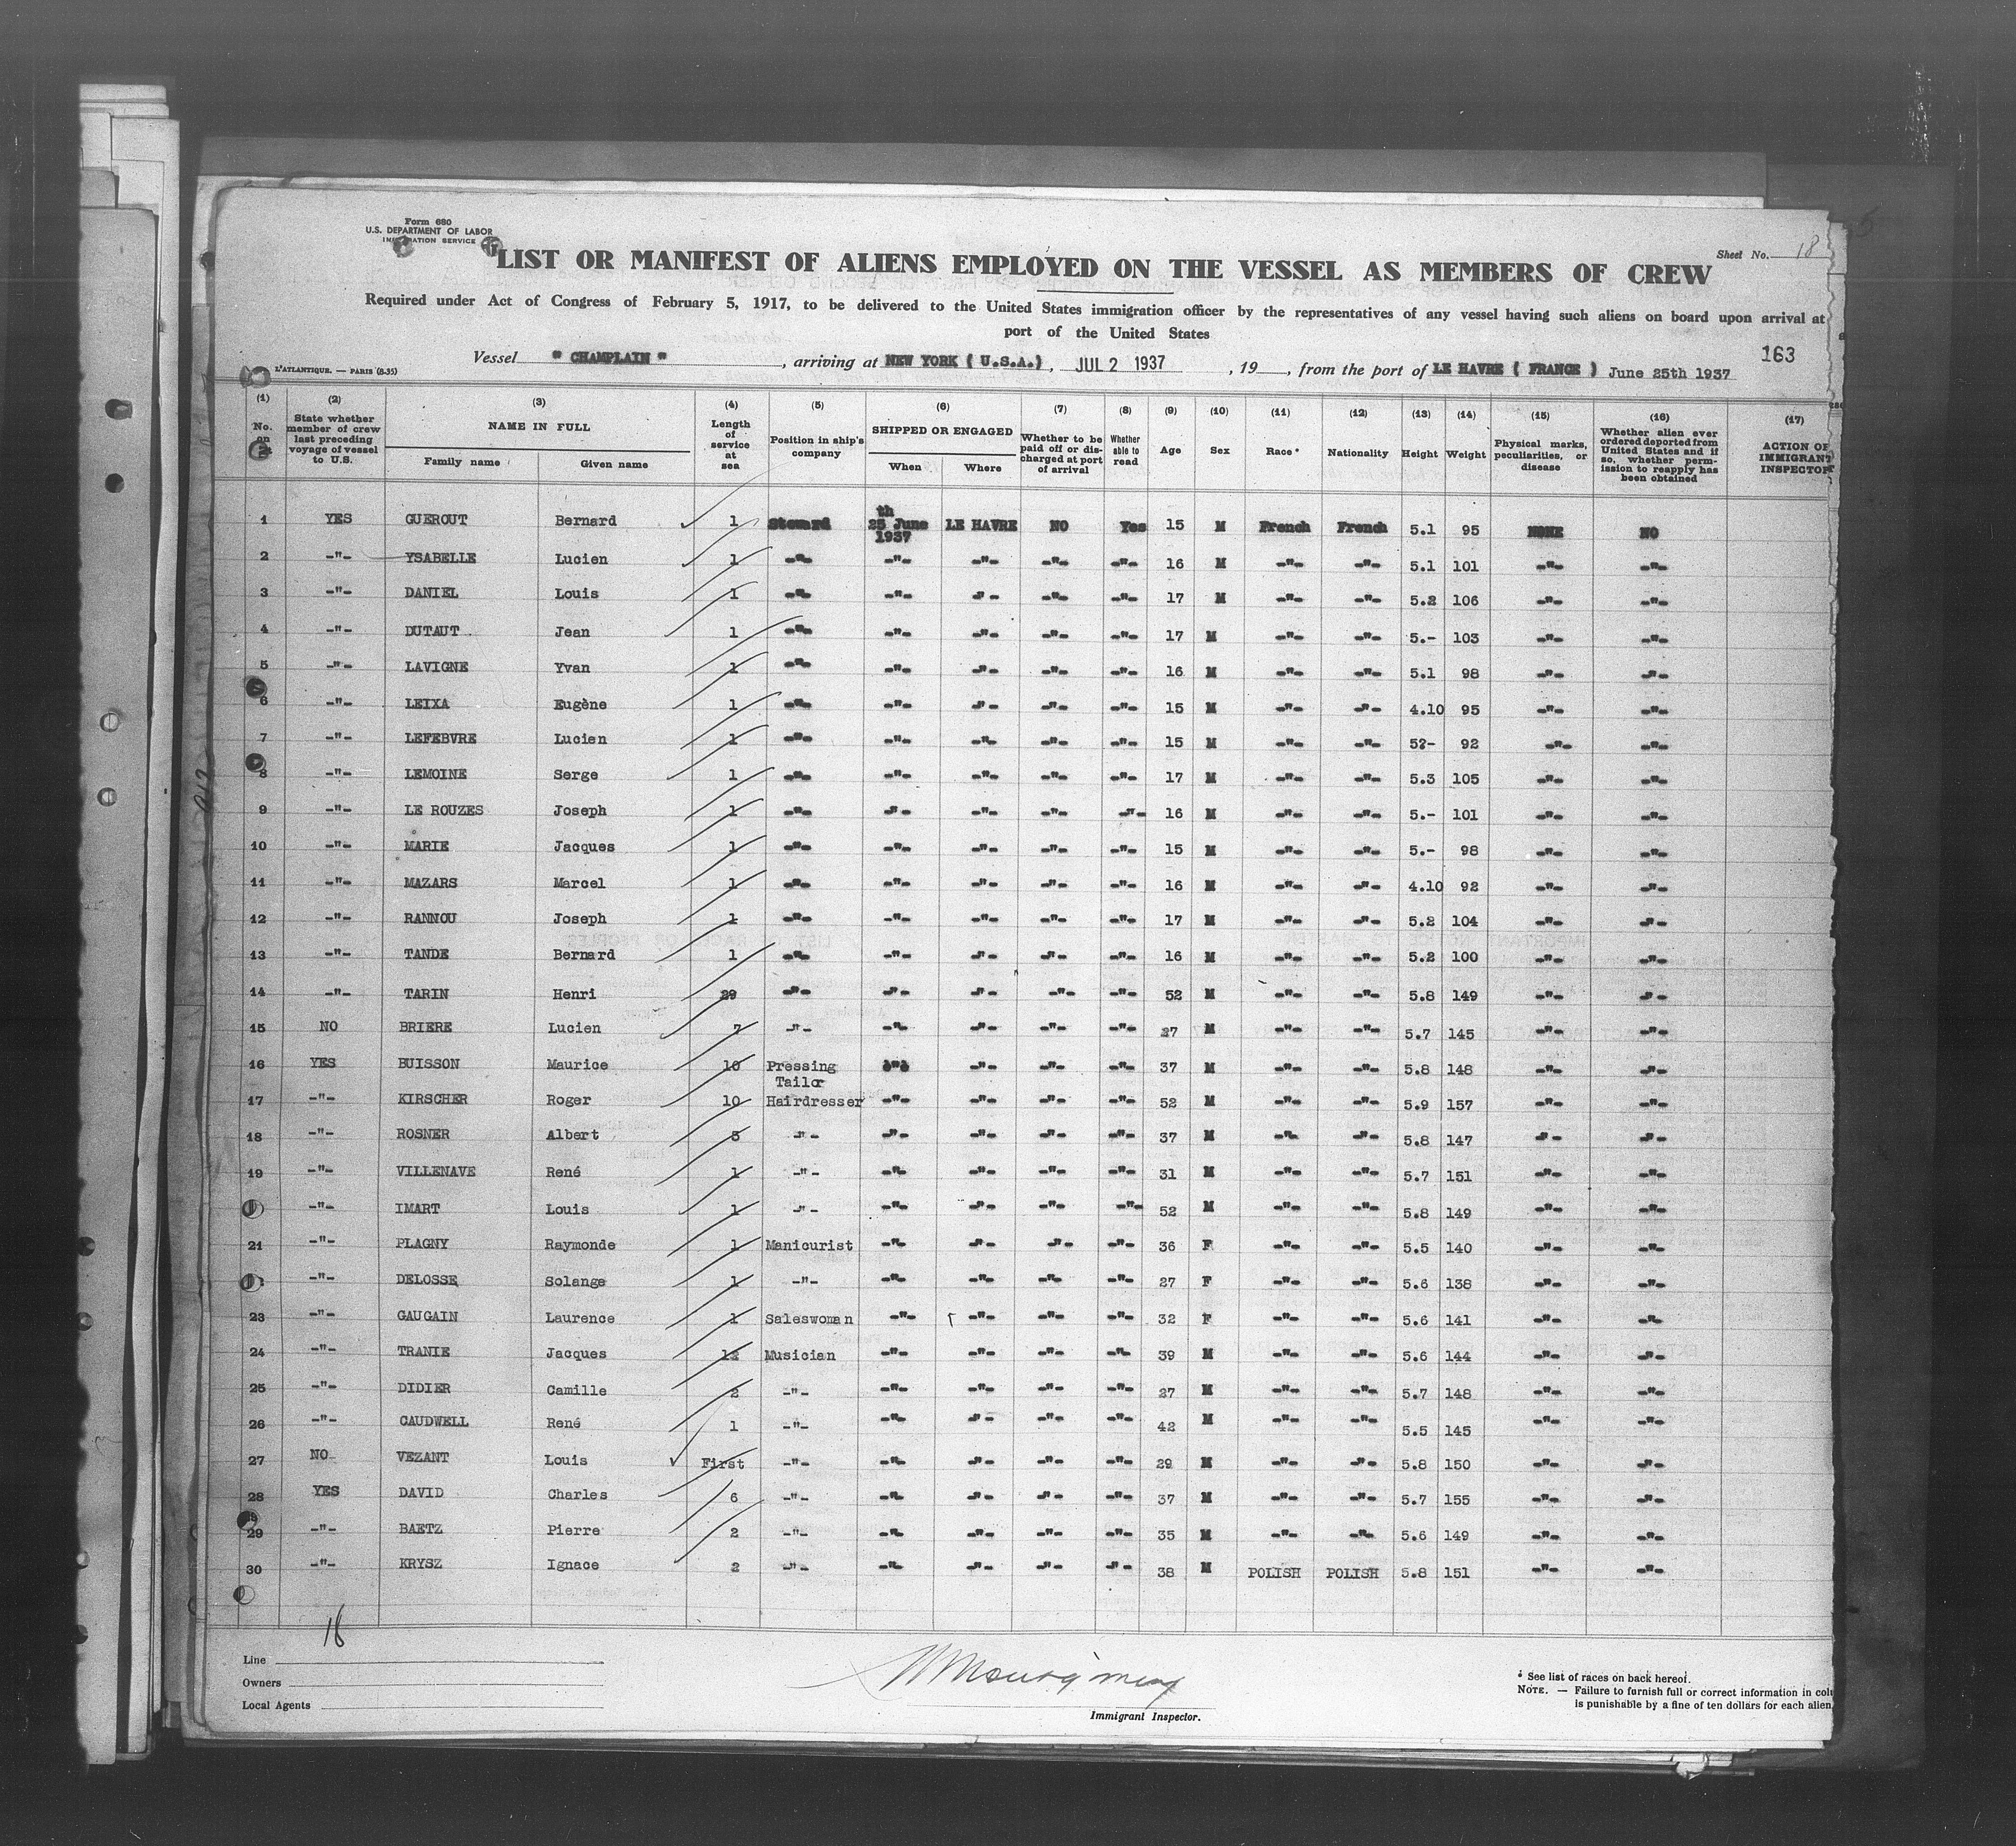 Form 680
U.S. DEPARTMENT OF LABOR
IMMIGRATION SERVICE
Sheet No. 18
LIST OR MANIFEST OF ALIENS EMPLOYED ON THE VESSEL AS MEMBERS OF CREW
Required under Act of Congress of February 5, 1917, to be delivered to the United States immigration officer by the representatives of any vessel having such aliens on board upon arrival at
port of the United States
163
Vessel " CHAMPLAIN " , arriving at NEW YORK ( U.S.A.) , JUL 2 1937 , 19 , from the port of LE HAVRE ( FRANCE ) June 25th 1937
L'ATLANTIQUE. — PARIS (8-35)
(1) (2) (3) (4) (5) (6) (7) (8) (9) (10) (11) (12) (13) (14) (15) (16) (17)
No. on
State whether member of crew last preceding voyage of vessel to U.S.
NAME IN FULL
Family name
Given name
Length of service at sea
Position in ship's company
SHIPPED OR ENGAGED
When
Where
Whether to be paid off or discharged at port of arrival
Whether able to read
Age
Sex
Race *
Nationality
Height
Weight
Physical marks, peculiarities, or disease
Whether alien ever ordered deported from United States and if so, whether permission to reapply has been obtained
ACTION OF IMMIGRANT INSPECTOR
1 YES GUEROUT Bernard 1 Steward 25th June 1937 LE HAVRE NO Yes 15 M French French 5.1 95 NONE NO
2 -"- YSABELLE Lucien 1 -"- -"- -"- -"- -"- 16 M -"- -"- 5.1 101 -"- -"-
3 -"- DANIEL Louis 1 -"- -"- -"- -"- -"- 17 M -"- -"- 5.2 106 -"- -"-
4 -"- DUTAUT Jean 1 -"- -"- -"- -"- -"- 17 M -"- -"- 5.- 103 -"- -"-
5 -"- LAVIGNE Yvan 1 -"- -"- -"- -"- -"- 16 M -"- -"- 5.1 98 -"- -"-
6 -"- LEIXA Eugène 1 -"- -"- -"- -"- -"- 15 M -"- -"- 4.10 95 -"- -"-
7 -"- LEFEBVRE Lucien 1 -"- -"- -"- -"- -"- 15 M -"- -"- 5?- 92 -"- -"-
8 -"- LEMOINE Serge 1 -"- -"- -"- -"- -"- 17 M -"- -"- 5.3 105 -"- -"-
9 -"- LE ROUZES Joseph 1 -"- -"- -"- -"- -"- 16 M -"- -"- 5.- 101 -"- -"-
10 -"- MARIE Jacques 1 -"- -"- -"- -"- -"- 15 M -"- -"- 5.- 98 -"- -"-
11 -"- MAZARS Marcel 1 -"- -"- -"- -"- -"- 16 M -"- -"- 4.10 92 -"- -"-
12 -"- RANNOU Joseph 1 -"- -"- -"- -"- -"- 17 M -"- -"- 5.2 104 -"- -"-
13 -"- TANDE Bernard 1 -"- -"- -"- -"- -"- 16 M -"- -"- 5.2 100 -"- -"-
14 -"- TARIN Henri 29 -"- -"- -"- -"- -"- 52 M -"- -"- 5.8 149 -"- -"-
15 NO BRIERE Lucien 7 -"- -"- -"- -"- -"- 27 M -"- -"- 5.7 145 -"- -"-
16 YES BUISSON Maurice 10 Pressing Tailor -"- -"- -"- -"- 37 M -"- -"- 5.8 148 -"- -"-
17 -"- KIRSCHER Roger 10 Hairdresser -"- -"- -"- -"- 52 M -"- -"- 5.9 157 -"- -"-
18 -"- ROSNER Albert 5 -"- -"- -"- -"- -"- 37 M -"- -"- 5.8 147 -"- -"-
19 -"- VILLENAVE René 1 -"- -"- -"- -"- -"- 31 M -"- -"- 5.7 151 -"- -"-
-"- IMART Louis 1 -"- -"- -"- -"- -"- 52 M -"- -"- 5.8 149 -"- -"-
21 -"- PLAGNY Raymonde 1 Manicurist -"- -"- -"- -"- 36 F -"- -"- 5.5 140 -"- -"-
-"- DELOSSE Solange 1 -"- -"- -"- -"- -"- 27 F -"- -"- 5.6 138 -"- -"-
23 -"- GAUGAIN Laurence 1 Saleswoman -"- -"- -"- -"- 32 F -"- -"- 5.6 141 -"- -"-
24 -"- TRANIE Jacques 12 Musician -"- -"- -"- -"- 39 M -"- -"- 5.6 144 -"- -"-
25 -"- DIDIER Camille 2 -"- -"- -"- -"- -"- 27 M -"- -"- 5.7 148 -"- -"-
26 -"- CAUDWELL René 1 -"- -"- -"- -"- -"- 42 M -"- -"- 5.5 145 -"- -"-
27 NO VEZANT Louis First -"- -"- -"- -"- -"- 29 M -"- -"- 5.8 150 -"- -"-
28 YES DAVID Charles 6 -"- -"- -"- -"- -"- 37 M -"- -"- 5.7 155 -"- -"-
29 -"- BAETZ Pierre 2 -"- -"- -"- -"- -"- 35 M -"- -"- 5.6 149 -"- -"-
30 -"- KRYSZ Ignace 2 -"- -"- -"- -"- -"- 38 M POLISH POLISH 5.8 151 -"- -"-
18
Line
Owners
Local Agents
Immigrant Inspector.
* See list of races on back hereof.
NOTE. — Failure to furnish full or correct information in colu
is punishable by a fine of ten dollars for each alien.